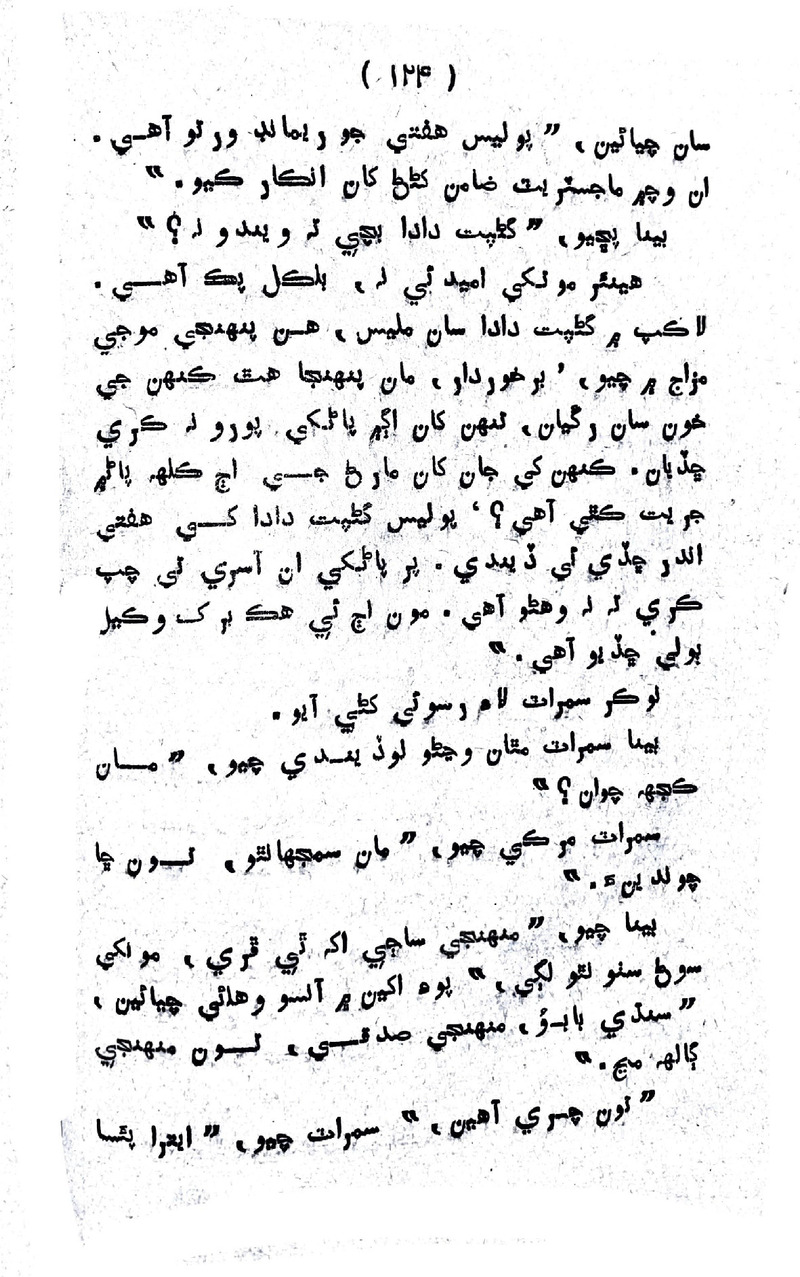 ( ۱۲۴ )
سان چيائين، ”پوليس هفتي جو ريمانڊ ورتو آهي.
ان وچ ۾ ماجسٽريٽ ضامن کڻڻ کان انڪار ڪيو.“
بينا پڇيو، ”گڻپت دادا بچي ته ويندو نہ؟“
هينئر مونکي اميد ئي نہ، بلڪل پڪ آهي.
لاڪپ ۾ گڻپت دادا سان مليس، هن پنهنجي موجي
مزاج ۾ چيو، ’برخوردار، مان پنهنجا هٿ ڪنهن جي
خون سان رڱيان، تنهن کان اڳ ۾ پاڻکي پورو نہ ڪري
ڇڏيان. ڪنهن کي جان کان مارڻ جي اڄ ڪلهہ پاڻ ۾
جريت ڪٿي آهي؟‘ پوليس گڻپت دادا کي هفتي
اندر ڇڏي ئي ڏيندي. پر پاڻکي ان آسري تي چپ
ڪري تہ نہ وهڻو آهي. مون اڄ ئي هڪ برک وڪيل
ٻولي ڇڏيو آهي.“
نوڪر سمرات لاءِ رسوئي کڻي آيو.
بينا سمرات مٿان وڃڻو لوڏيندي چيو، ”مان
ڪجهہ چوان؟“
سمرات مرڪي چيو، ”مان سمجهانٿو، تون ڇا
چوندينءَ.“
بينا چيو، ”منهنجي ساڄي اک ٿي ڦري، مونکي
سوڻ سٺو نٿو لڳي،“ پوءِ اکين ۾ آنسو وهائي چيائين،
”سنڌي بابوُ، منهنجي صدقي، تون منهنجي
ڳالهہ مڃ.“
”تون چري آهين،“ سمرات چيو، ”ايترا پئسا